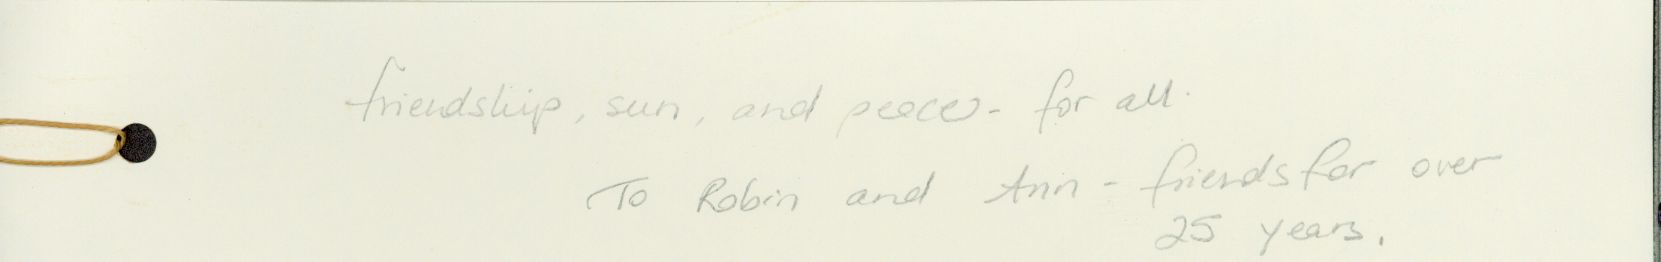 friendship, sun, and peace - for all.
To Robin and Ann - friends for over
25 years.